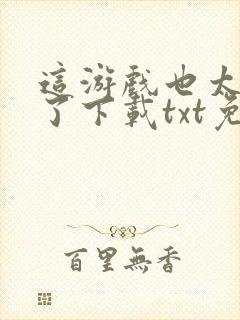 這游戲也太
了下載txt免
百里無香